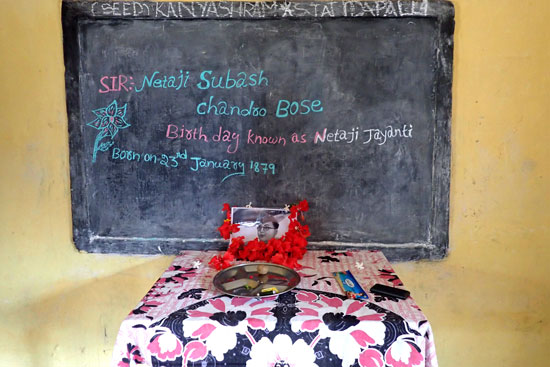 (SEED) KANYASHRAM
SIR:- Netaji Subash
chandro BOSE
Birth day known as Netaji Jayanti
Born on 23rd January 1879